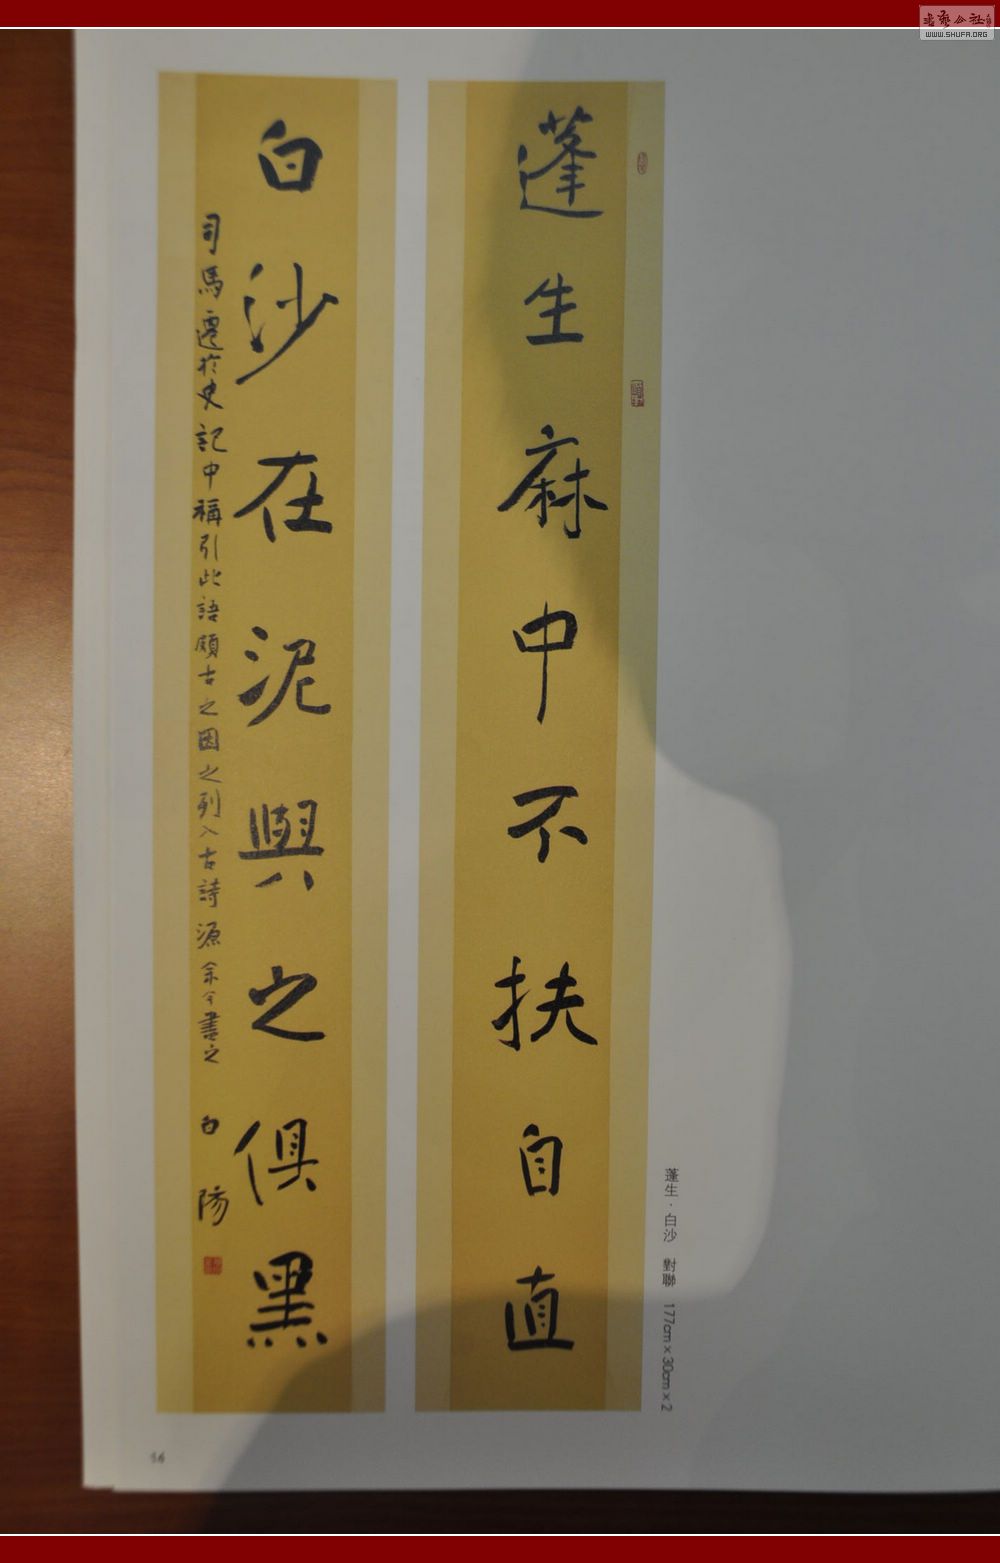 蓬生麻中不扶自直
白沙在泥與之俱黑
司馬遷於史記中稱引此語頗古之因之列入古詩源余今書之 白陽
蓬生·白沙 對聯 177cm×30cm×2
56
WWW.SHUFA.ORG